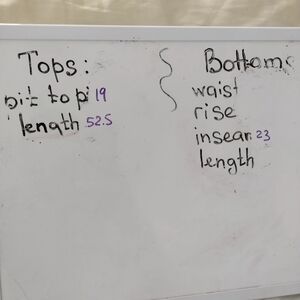 Tops:
pit to p 19
length 52.5
Bottoms
waist
rise
inseam 23
length